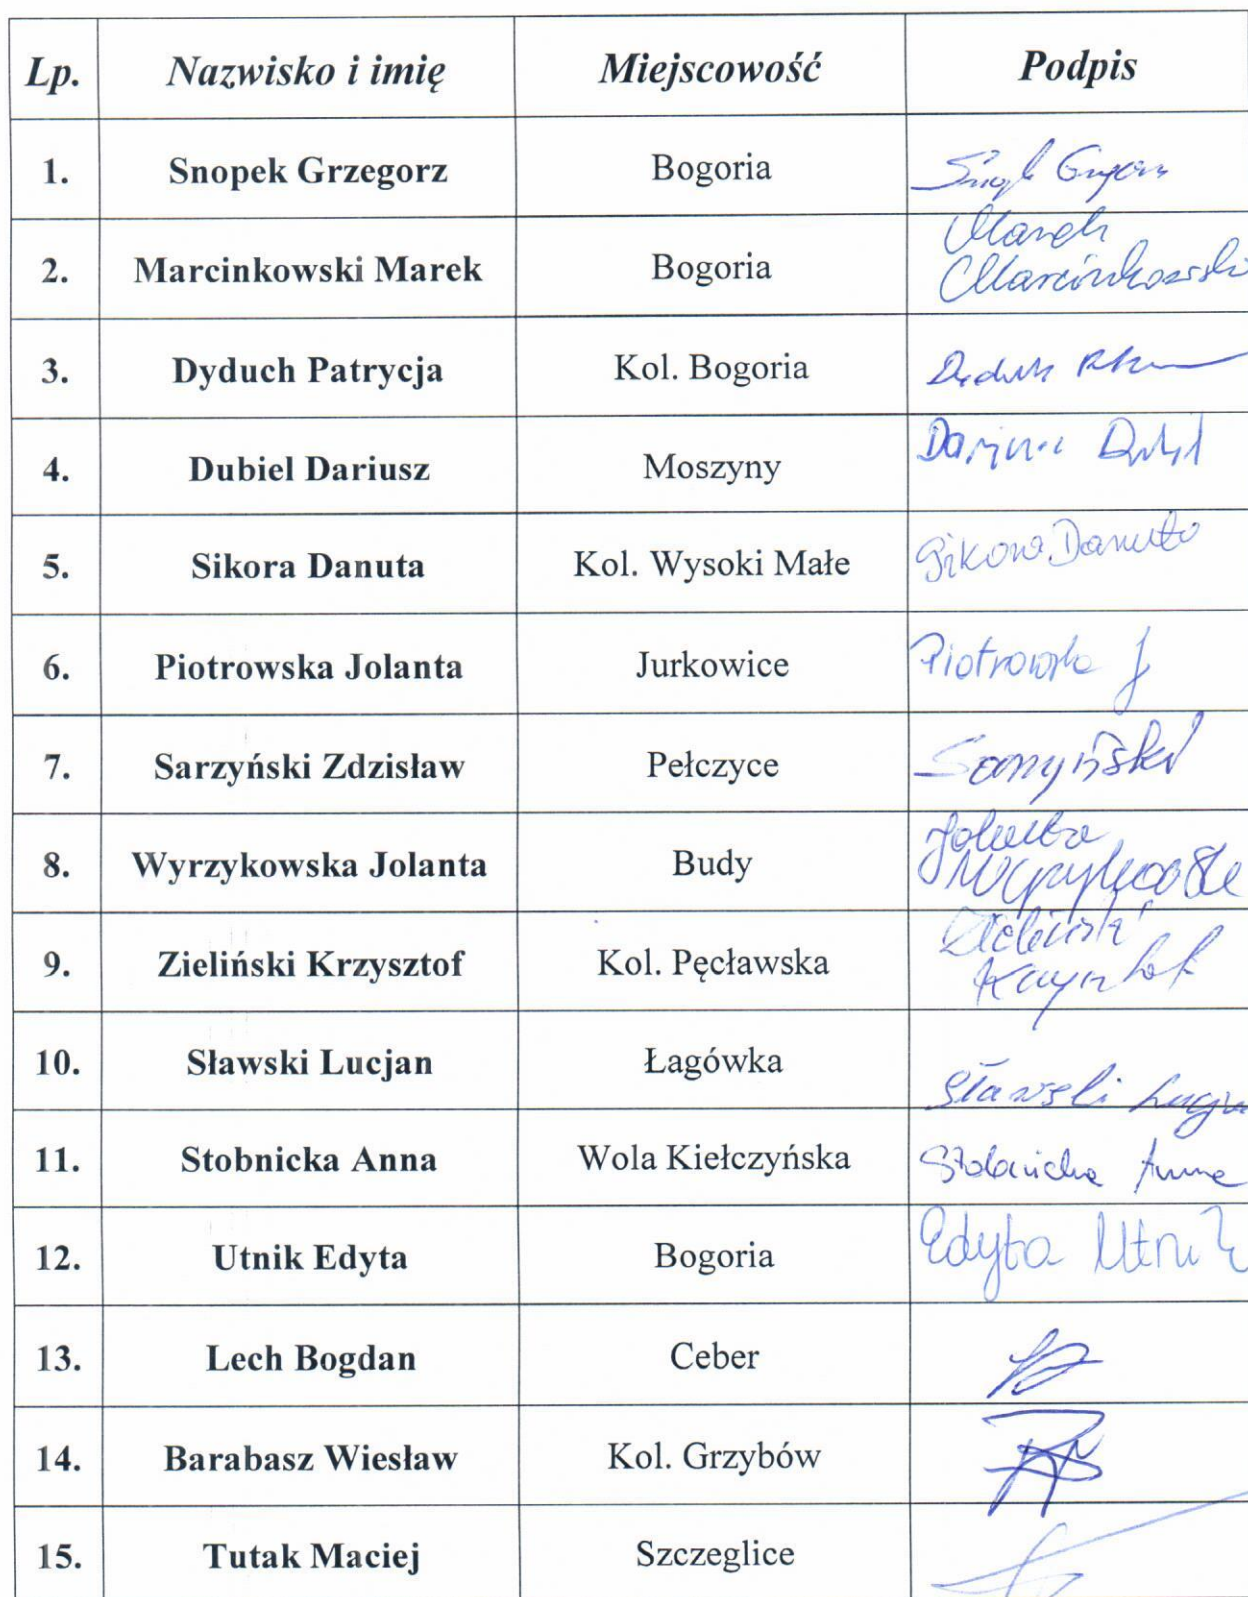 Lp. Nazwisko i imię Miejscowość Podpis
1. Snopek Grzegorz Bogoria
Marek
2. Marcinkowski Marek Bogoria Marcinkowski
3. Dyduch Patrycja Kol. Bogoria
4. Dubiel Dariusz Moszyny Dariusz Dubiel
5. Sikora Danuta Kol. Wysoki Małe Sikora Danuta
6. Piotrowska Jolanta Jurkowice Piotrowska J
7. Sarzyński Zdzisław Pełczyce Sarzyński
Jolanta
8. Wyrzykowska Jolanta Budy Wyrzykowska
Zieliński
9. Zieliński Krzysztof Kol. Pęcławska Krzysztof
10. Sławski Lucjan Łagówka Sławski Lucjan
11. Stobnicka Anna Wola Kiełczyńska Stobnicka Anna
12. Utnik Edyta Bogoria Edyta Utnik
13. Lech Bogdan Ceber
14. Barabasz Wiesław Kol. Grzybów
15. Tutak Maciej Szczeglice